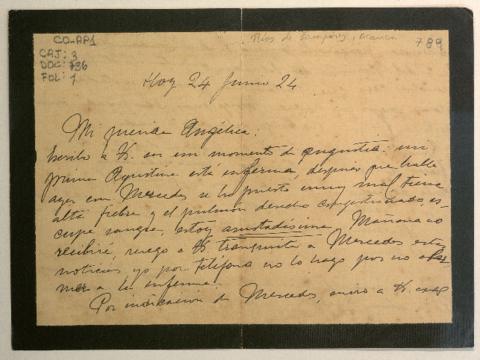 CO-AP1
CAJ: 3
DOC: 786
FOL: 1
Ríos de
789
Hoy 24 Junio 24
Mi querida Angélica:
escribo a V. en un momento de angustia: mi
prima Agustina está enferma, después que hablé
ayer con Mercedes se ha puesto muy mal, tiene
alta fiebre y el pulmón derecho congestionado es-
cupe sangre, estoy asustadísima. Mañana no
recibiré, ruego a V. transmita a Mercedes estas
noticias, yo por teléfono no lo hago por no alar
mar a la enferma.
Por indicación de Mercedes, envío a V.